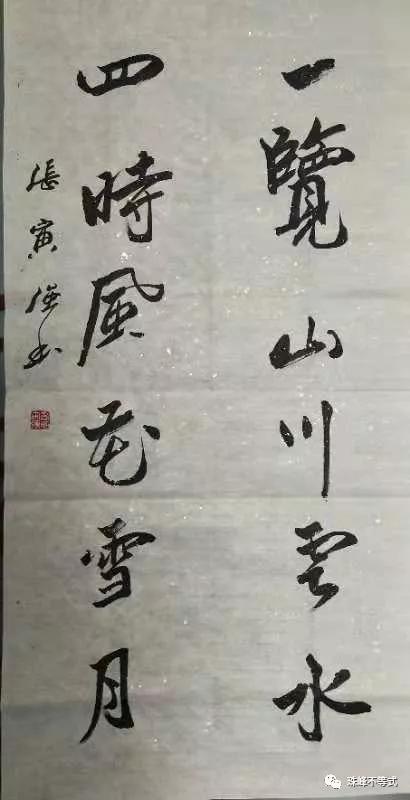 一覽山川雲水
四時風花雪月
張寅
书
珠峰不等式